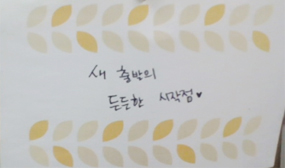 새 출발의
든든한 시작점♥